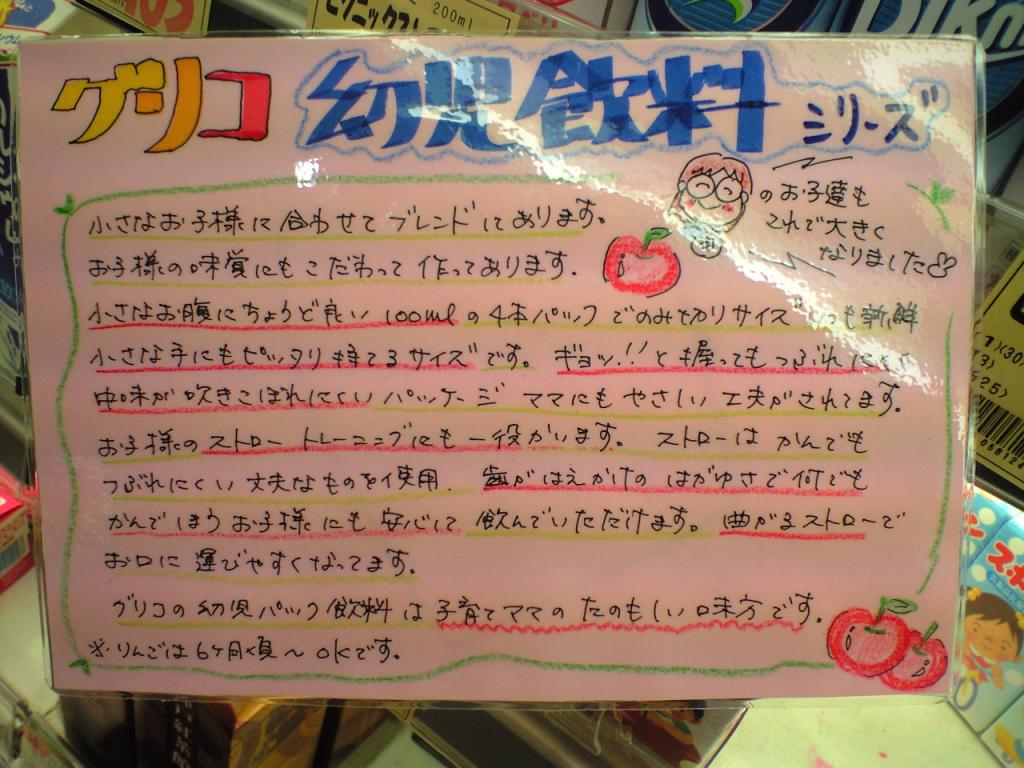 200ml
グリコ 幼児飲料 シリーズ
のお子達も
これで大きく
なりました
小さなお子様に合わせてブレンドしてあります。
お子様の味覚にもこだわって作ってあります。
小さなお腹にちょうど良い 100mlの4本パックでのみ切りサイズ いつも新鮮
小さな手にもピッタリ持てるサイズです。 ギョッ!!と握ってもつぶれにくく
中味が吹きこぼれにくいパッケージ ママにもやさしい工夫がされてます。
お子様のストロートレーニングにも一役かいます。 ストローはかんでも
つぶれにくい丈夫なものを使用. 歯がはえかけのはがゆさで何でも
かんでしまうお子様にも安心して飲んでいただけます。 曲がるストローで
お口に運びやすくなってます。
グリコの幼児パック飲料は子育てママのたのもしい味方です。
※りんごは6ヶ月頃～OKです。